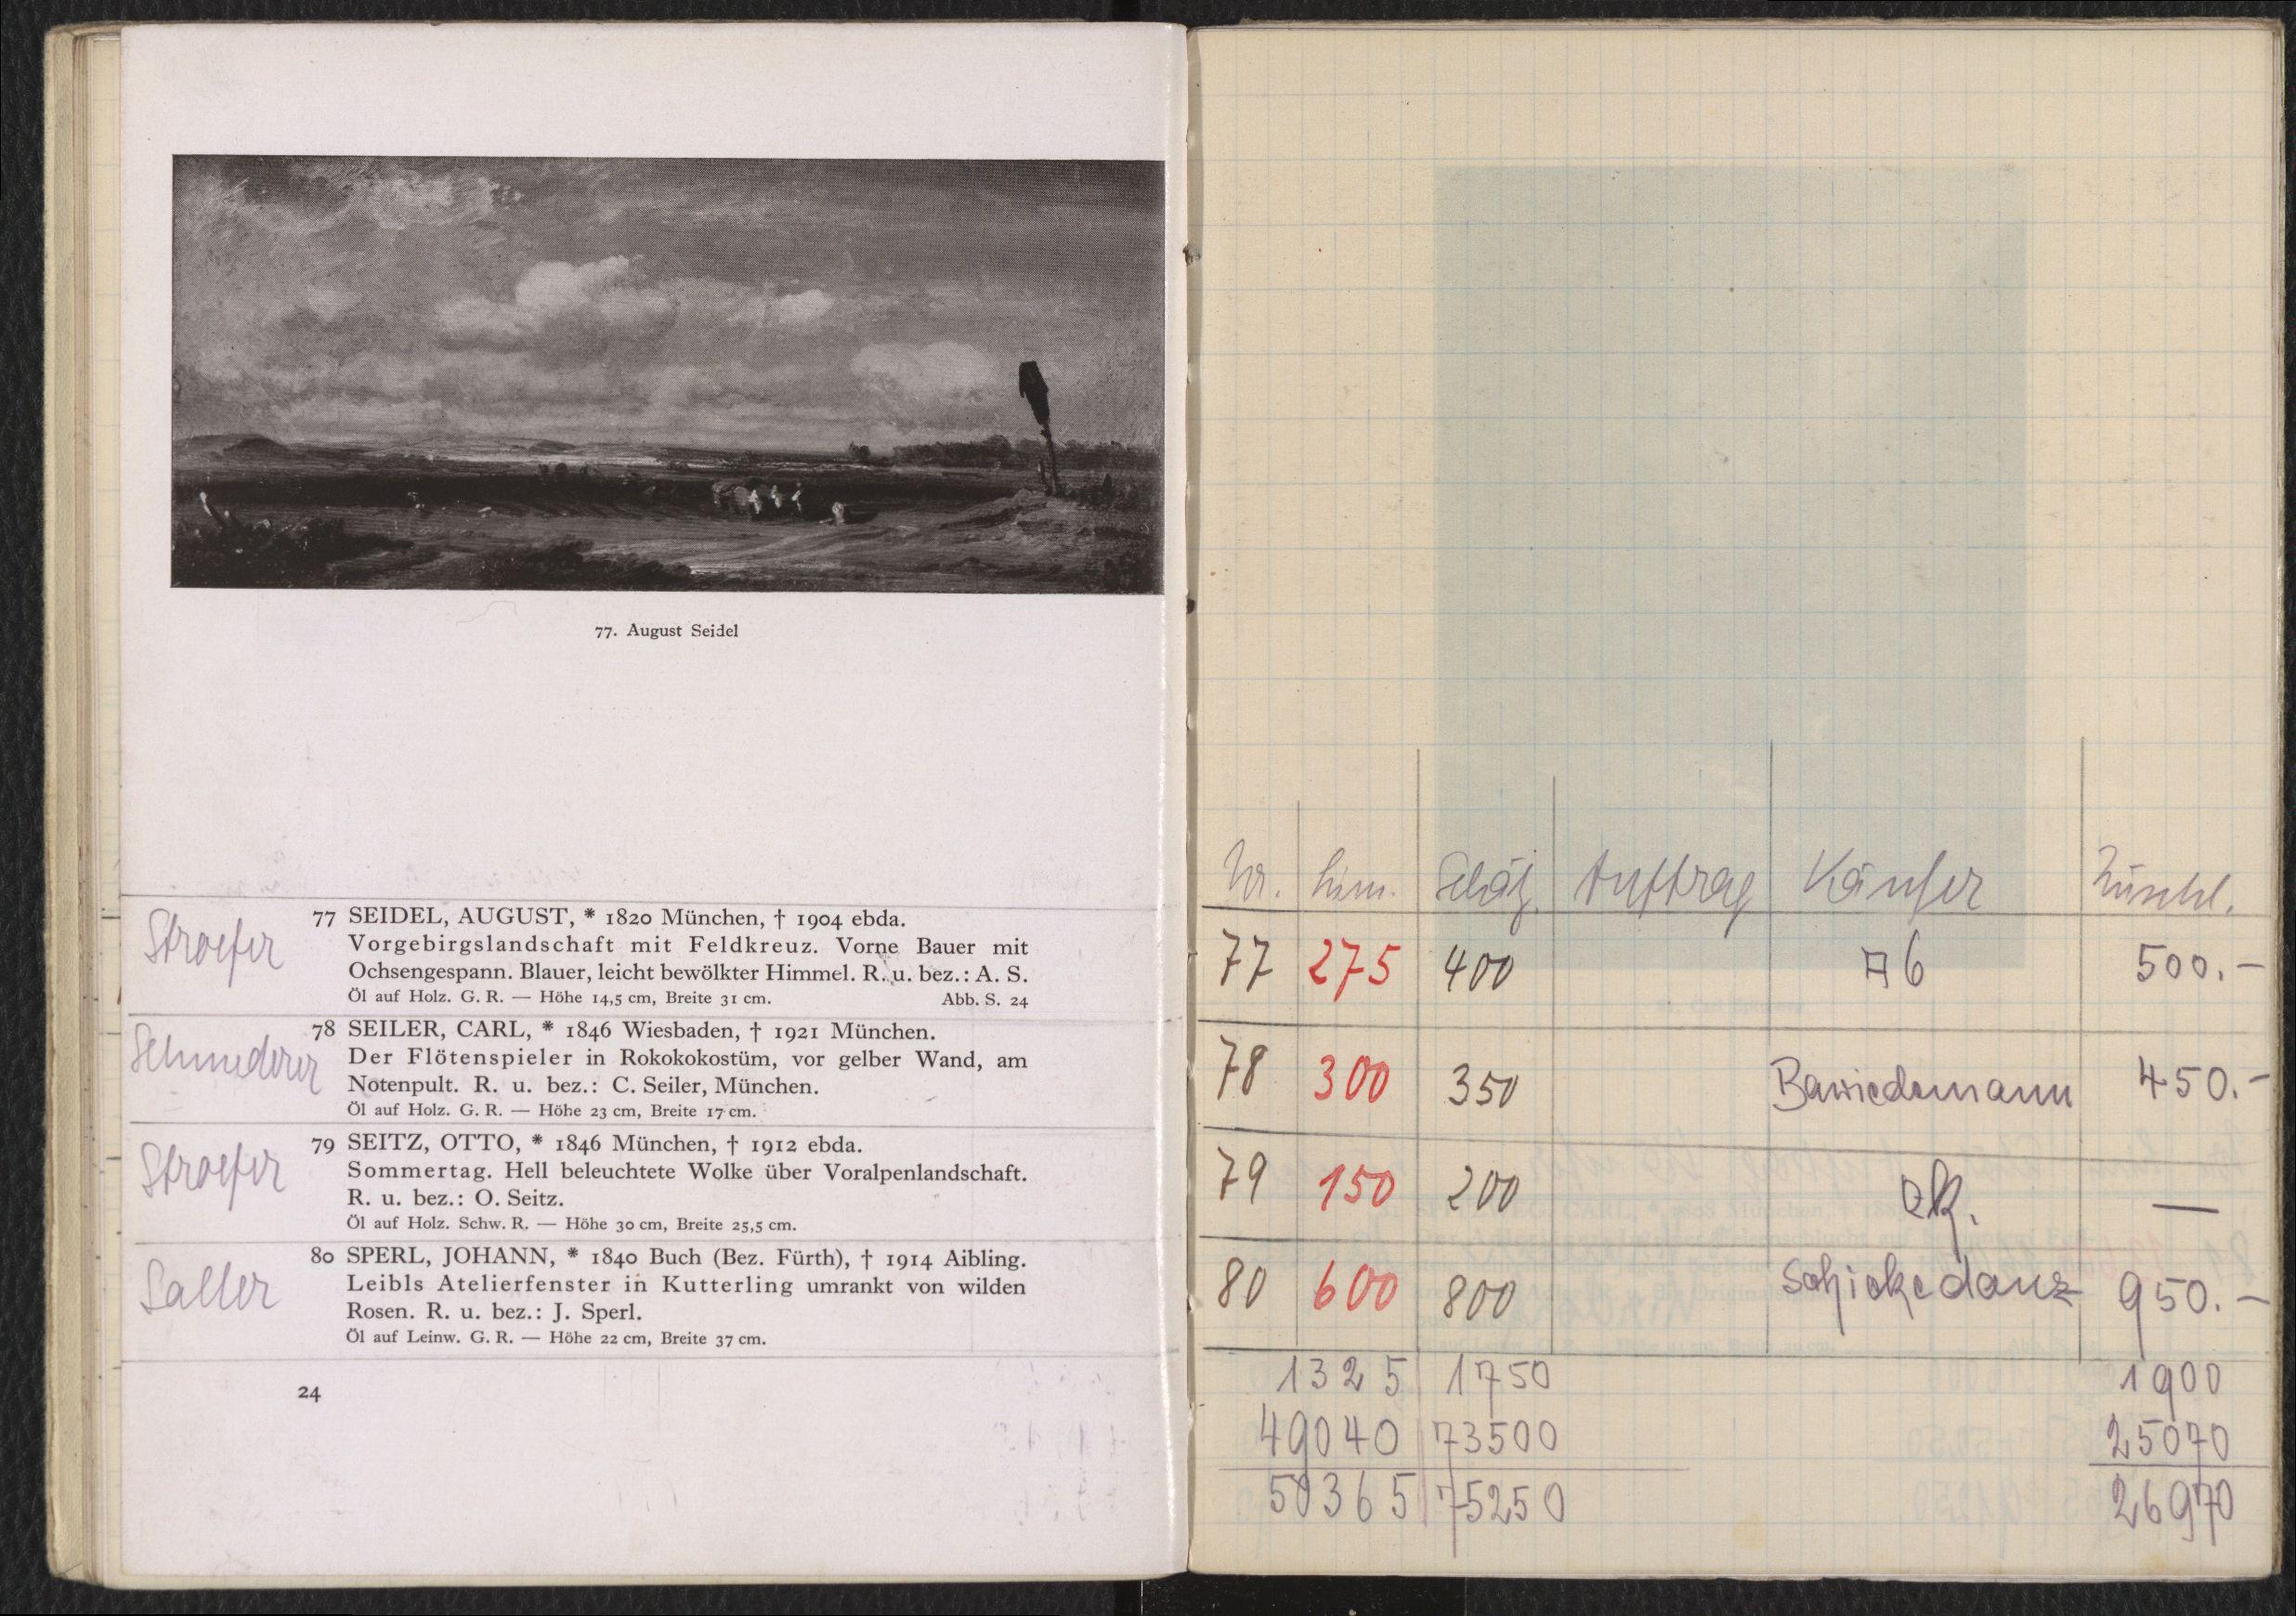 77. August Seidel
Stroefer
77 SEIDEL, AUGUST, * 1820 München, † 1904 ebda.
Vorgebirgslandschaft mit Feldkreuz. Vorne Bauer mit
Ochsengespann. Blauer, leicht bewölkter Himmel. R. u. bez.: A. S.
Öl auf Holz. G. R. — Höhe 14,5 cm, Breite 31 cm. Abb. S. 24
Schmederer
78 SEILER, CARL, * 1846 Wiesbaden, † 1921 München.
Der Flötenspieler in Rokokokostüm, vor gelber Wand, am
Notenpult. R. u. bez.: C. Seiler, München.
Öl auf Holz. G. R. — Höhe 23 cm, Breite 17 cm.
Stroefer
79 SEITZ, OTTO, * 1846 München, † 1912 ebda.
Sommertag. Hell beleuchtete Wolke über Voralpenlandschaft.
R. u. bez.: O. Seitz.
Öl auf Holz. Schw. R. — Höhe 30 cm, Breite 25,5 cm.
Saller
80 SPERL, JOHANN, * 1840 Buch (Bez. Fürth), † 1914 Aibling.
Leibls Atelierfenster in Kutterling umrankt von wilden
Rosen. R. u. bez.: J. Sperl.
Öl auf Leinw. G. R. — Höhe 22 cm, Breite 37 cm.
24
Nr. Lim. Schätz. Auftrag Käufer Zuschl.
77 275 400 A6 500.—
78 300 350 450.—
79 150 200 —
80 600 800 Schickedanz 950.—
1325 1750 1900
49040 73500 25070
50365 75250 26970